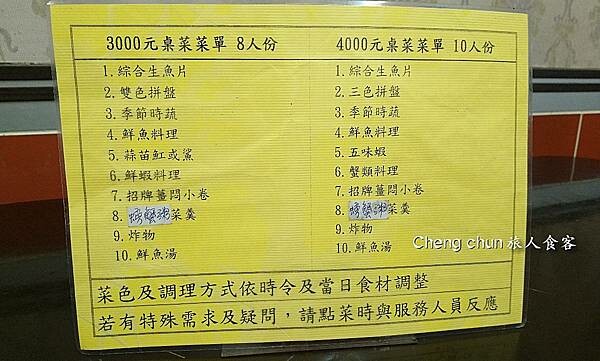 3000元桌菜菜單 8人份
1.綜合生魚片
2.雙色拼盤
3.季節時蔬
4.鮮魚料理
5.蒜苗魟或鯊
6.鮮蝦料理
7.招牌薑悶小卷
8.螃蟹粥菜羹
9.炸物
10.鮮魚湯
4000元桌菜菜單 10人份
1.綜合生魚片
2.三色拼盤
3.季節時蔬
4.鮮魚料理
5.五味蝦
6.蟹類料理
7.招牌薑悶小卷
8.螃蟹粥菜羹
9.炸物
10.鮮魚湯
菜色及調理方式依時令及當日食材調整
若有特殊需求及疑問，請點菜時與服務人員反應
Cheng chun旅人食客